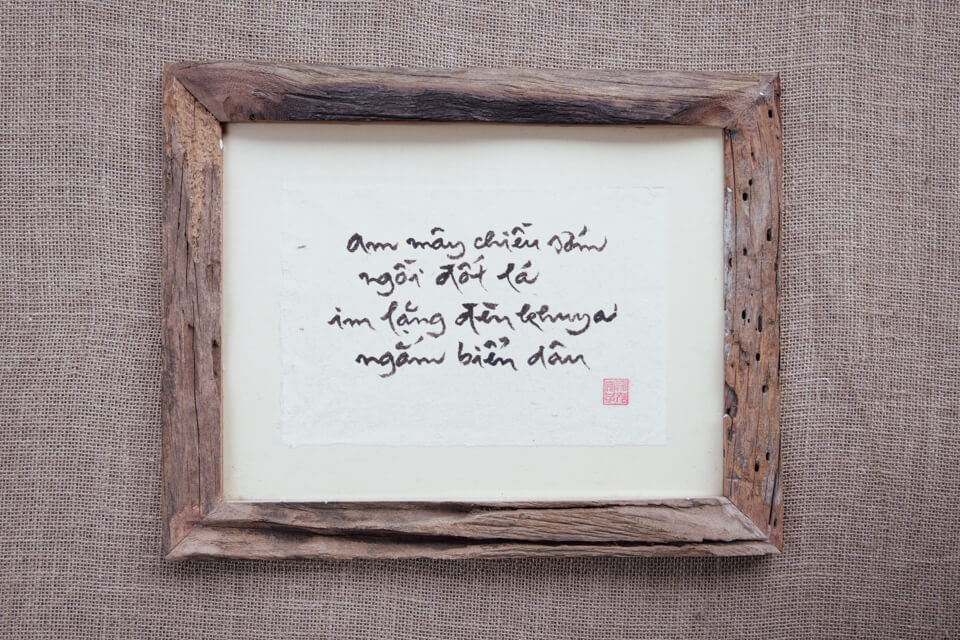 am mây chiều sớm
ngồi đốt lá
im lặng đến khuya
ngắm biển dâu